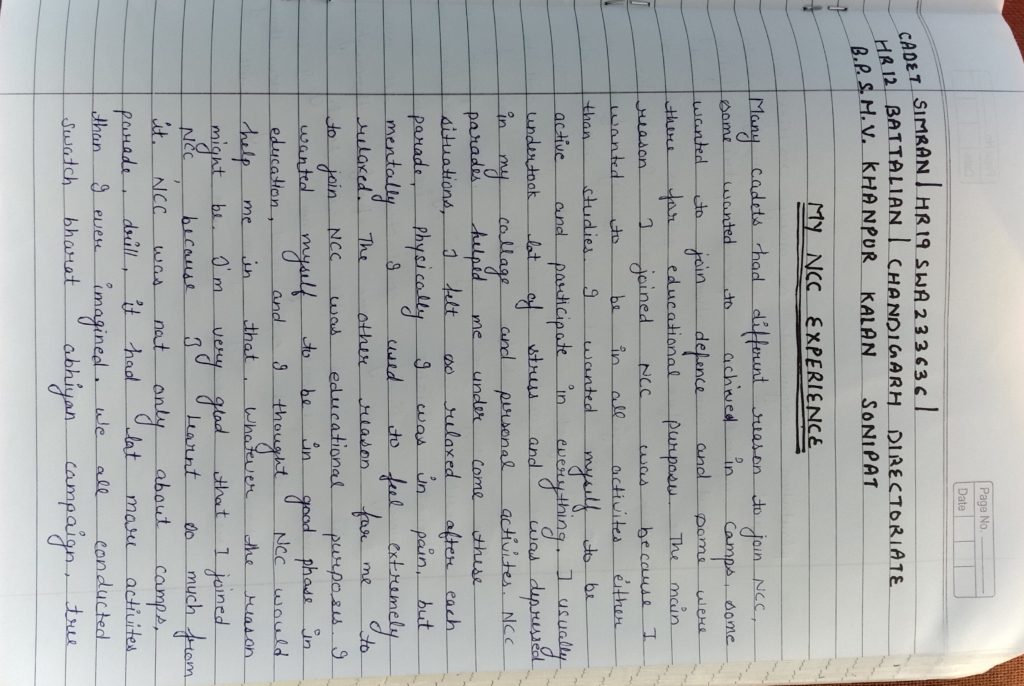 Page No.
Date
CADET SIMRAN | HR19SWA233636 |
HR12 BATTALIAN | CHANDIGARH DIRECTORIATE
B.P.S.M.V. KHANPUR KALAN SONIPAT
MY NCC EXPERIENCE
Many cadets had different reason to join NCC,
some wanted to achieved in camps, some
wanted to join defence and some were
there for educational purpose. The main
reason I joined NCC was because I
wanted to be in all activites either
than studies. I wanted myself to be
active and participate in everything. I usually
undertook lot of stress and was depressed
in my callage and personal activites. NCC
parades helped me under come these
situations, I felt so relaxed after each
parade, Physically I was in pain, but
mentally I used to feel extremely
relaxed. The other reason for me to
to join NCC was educational purposes. I
wanted myself to be in good phase in
education, and I thought NCC would
help me in that, whatever the reason
might be. I'm very glad that I joined
NCC because I learnt so much from
it. NCC was not only about camps,
parade, drill, it had lot more activites
than I ever imagined. We all conducted
swatch bharat abhiyan campaign, tree